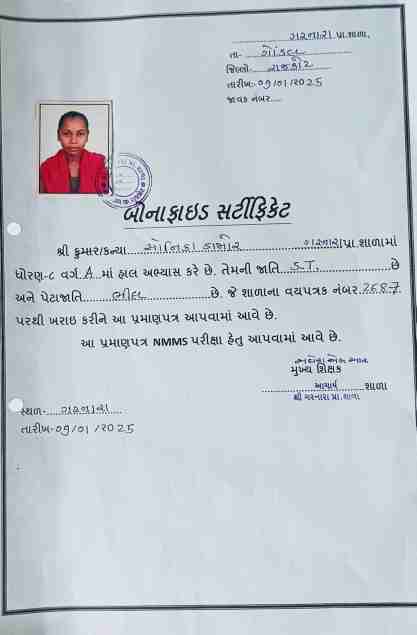 ગરનારા પ્રા.શાળા,
તા- ગોંડલ
જિલ્લો- રાજકોટ
તારીખ:-09/01/2025
જાવક નંબર....
બોનાફાઇડ સર્ટીફિકેટ
શ્રી કુમાર/કન્યા ...સોનિકા ડામોર............ ગરનારા પ્રા.શાળામાં
ધોરણ-૮ વર્ગ A માં હાલ અભ્યાસ કરે છે. તેમની જાતિ ...S.T...................છે
અને પેટાજાતિ.......ભીલ..............છે. જે શાળાના વયપત્રક નંબર.2687.
પરથી ખરાઇ કરીને આ પ્રમાણપત્ર આપવામાં આવે છે.
આ પ્રમાણપત્ર NMMS પરીક્ષા હેતુ આપવામાં આવે છે.
મુખ્ય શિક્ષક
આચાર્ય શાળા
શ્રી ગરનારા પ્રા. શાળા
સ્થળ- ગરનારા
તારીખ-09/01/2025